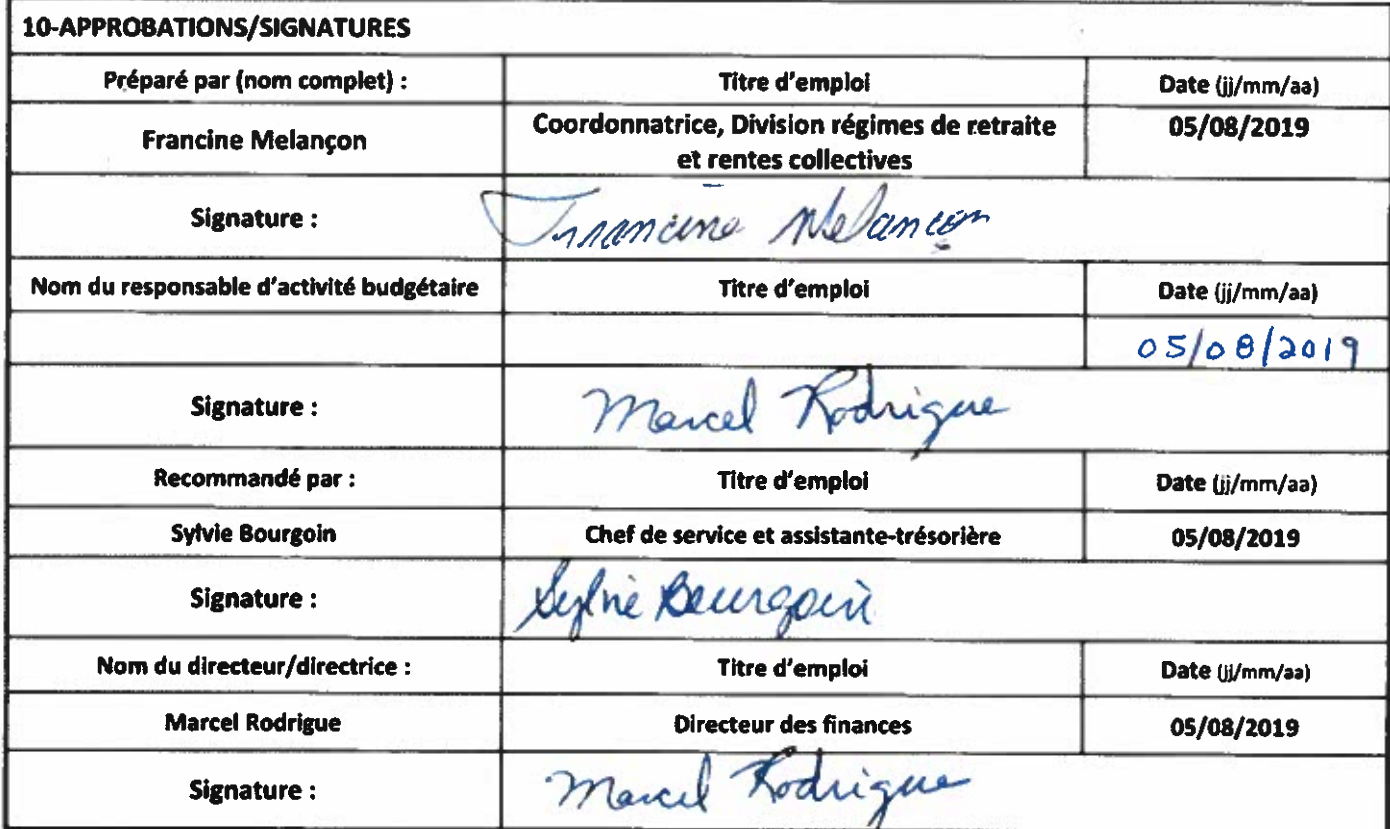 10-APPROBATIONS/SIGNATURES
Préparé par (nom complet) : Titre d'emploi Date (jj/mm/aa)
Francine Melançon Coordonnatrice, Division régimes de retraite 05/08/2019
et rentes collectives
Signature : Francine Melançon
Nom du responsable d'activité budgétaire Titre d'emploi Date (jj/mm/aa)
05/08/2019
Signature : Marcel Rodrigue
Recommandé par : Titre d'emploi Date (jj/mm/aa)
Sylvie Bourgoin Chef de service et assistante-trésorière 05/08/2019
Signature : Sylvie Bourgoin
Nom du directeur/directrice : Titre d'emploi Date (jj/mm/aa)
Marcel Rodrigue Directeur des finances 05/08/2019
Signature : Marcel Rodrigue